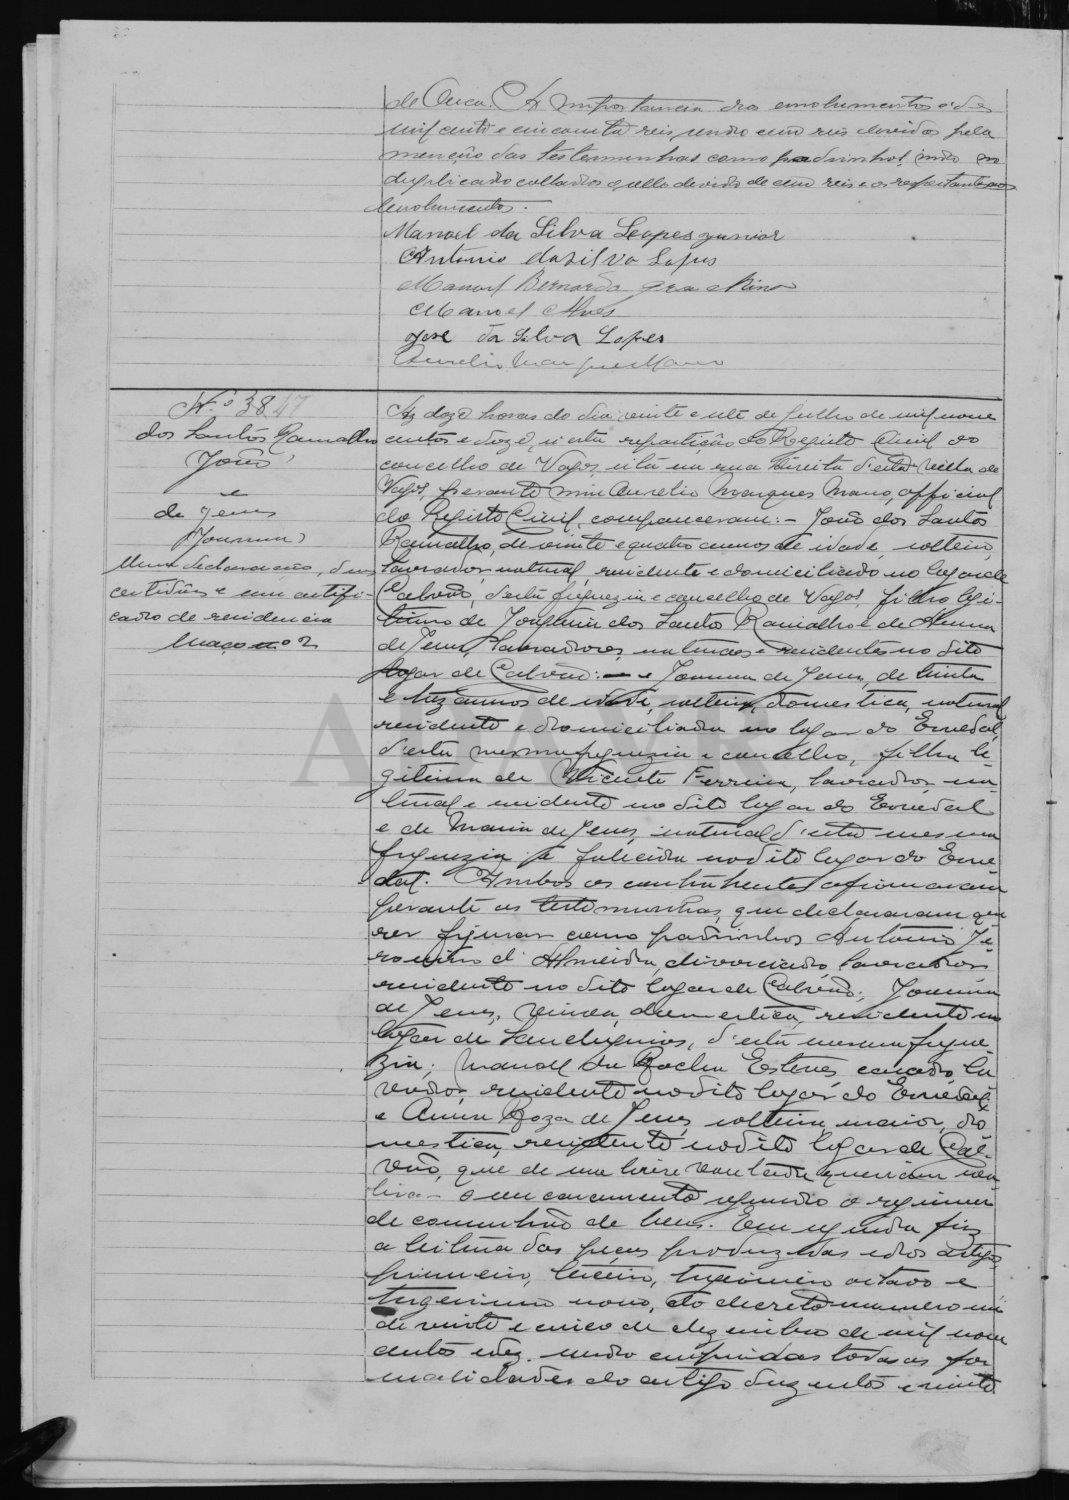 de Ouca. A importancia dos emolumentos é de
mil cento e cincoenta reis, sendo cem reis devidos pela
menção das testemunhas como padrinhos, indo no
duplicado collados o sello devido de cem reis e os respeitantes aos
emolumentos.
Manoel da Silva Lopes junior
Antonio da Silva Lopes
Manoel Bernardo
Manoel Alves
José da Silva Lopes
Aurelio Marques Mano
N.º 38 47
dos Santos Ramalho
João
e
de Jesus
Joanna
Uma declaração, duas
certidões e um certifi-
cado de residencia
Maço nº 2
Ás doze horas do dia vinte e sete de Julho de mil nove
centos e doze, n'esta repartição do Registo Civil do
concelho de Vagos, sita na rua Direita d'esta villa de
Vagos, perante mim Aurelio Marques Mano, official
do Registo Civil, compareceram: - João dos Santos
Ramalho, de vinte e quatro annos de idade, solteiro,
lavrador, natural, residente e domiciliado no logar de
Calvão, d'esta freguezia e concelho de Vagos, filho legi-
timo de Joaquim dos Santos Ramalho e de Anna
de Jesus, lavradores, naturaes e residentes no dito
logar de Calvão: - e Joanna de Jesus, de trinta
e trez annos de idade, solteira, domestica, natural
residente e domiciliada no logar do Ervedal,
d'esta mesma freguezia e concelho, filha le-
gitima de Vicente Ferreira, lavrador, na-
tural e residente no dito logar do Ervedal
e de Maria de Jesus, natural d'esta mesma
freguezia já fallecida no dito logar do Erve
dal. Ambos os contrahentes afirmaram
perante as testemunhas, que declararam que
rer figurar como padrinhos Antonio Je-
ronimo d'Almeida, divorciado, lavrador
residente no dito logar de Calvão; Joanna
de Jesus, viuva, domestica, residente no
logar de d'esta mesma fregue-
zia; Manoel da Rocha Esteves casado, la-
vrador, residente no dito logar do Ervedal
e Anna Roza de Jesus, solteira, maior, do
mestica, residente no dito logar de Cal-
vão, que de sua livre vontade queriam rea-
lisar o seu casamento segundo o regimen
de comunhão de bens. Em seguida fiz
a leitura das peças produzidas e dos artigos
primeiro, terceiro, trigesimo oitavo e
trigesimo nono, do decreto numero um
de vinte e cinco de dezembro de mil nove
centos e dez. sendo cumpridas todas as for
malidades do artigo duzentos e vinte